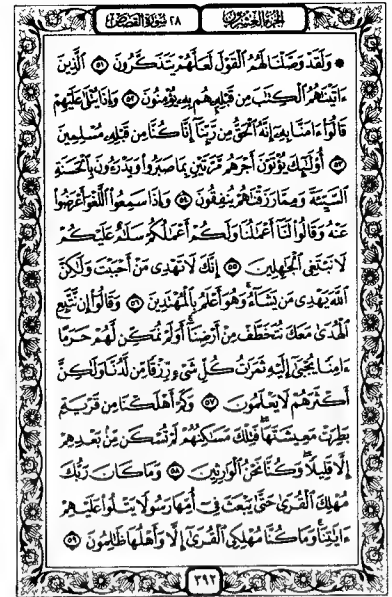 الجزء العشرون ٢٨ سورة القصص
* وَلَقَدْ وَصَّلْنَا لَهُمُ ٱلْقَوْلَ لَعَلَّهُمْ يَتَذَكَّرُونَ ٥١ ٱلَّذِينَ
ءَاتَيْنَٰهُمُ ٱلْكِتَٰبَ مِن قَبْلِهِۦ هُم بِهِۦ يُؤْمِنُونَ ٥٢ وَإِذَا يُتْلَىٰ عَلَيْهِمْ
قَالُوٓا۟ ءَامَنَّا بِهِۦٓ إِنَّهُ ٱلْحَقُّ مِن رَّبِّنَآ إِنَّا كُنَّا مِن قَبْلِهِۦ مُسْلِمِينَ
٥٣ أُو۟لَٰٓئِكَ يُؤْتَوْنَ أَجْرَهُم مَّرَّتَيْنِ بِمَا صَبَرُوا۟ وَيَدْرَءُونَ بِٱلْحَسَنَةِ
ٱلسَّيِّئَةَ وَمِمَّا رَزَقْنَٰهُمْ يُنفِقُونَ ٥٤ وَإِذَا سَمِعُوا۟ ٱللَّغْوَ أَعْرَضُوا۟
عَنْهُ وَقَالُوا۟ لَنَآ أَعْمَٰلُنَا وَلَكُمْ أَعْمَٰلُكُمْ سَلَٰمٌ عَلَيْكُمْ
لَا نَبْتَغِى ٱلْجَٰهِلِينَ ٥٥ إِنَّكَ لَا تَهْدِى مَنْ أَحْبَبْتَ وَلَٰكِنَّ
ٱللَّهَ يَهْدِى مَن يَشَآءُ وَهُوَ أَعْلَمُ بِٱلْمُهْتَدِينَ ٥٦ وَقَالُوٓا۟ إِن نَّتَّبِعِ
ٱلْهُدَىٰ مَعَكَ نُتَخَطَّفْ مِنْ أَرْضِنَآ أَوَلَمْ نُمَكِّن لَّهُمْ حَرَمًا
ءَامِنًا يُجْبَىٰٓ إِلَيْهِ ثَمَرَٰتُ كُلِّ شَىْءٍ رِّزْقًا مِّن لَّدُنَّا وَلَٰكِنَّ
أَكْثَرَهُمْ لَا يَعْلَمُونَ ٥٧ وَكَمْ أَهْلَكْنَا مِن قَرْيَةٍۭ
بَطِرَتْ مَعِيشَتَهَا فَتِلْكَ مَسَٰكِنُهُمْ لَمْ تُسْكَن مِّنۢ بَعْدِهِمْ
إِلَّا قَلِيلًا وَكُنَّا نَحْنُ ٱلْوَٰرِثِينَ ٥٨ وَمَا كَانَ رَبُّكَ
مُهْلِكَ ٱلْقُرَىٰ حَتَّىٰ يَبْعَثَ فِىٓ أُمِّهَا رَسُولًا يَتْلُوا۟ عَلَيْهِمْ
ءَايَٰتِنَا وَمَا كُنَّا مُهْلِكِى ٱلْقُرَىٰٓ إِلَّا وَأَهْلُهَا ظَٰلِمُونَ ٥٩
٣٩٢